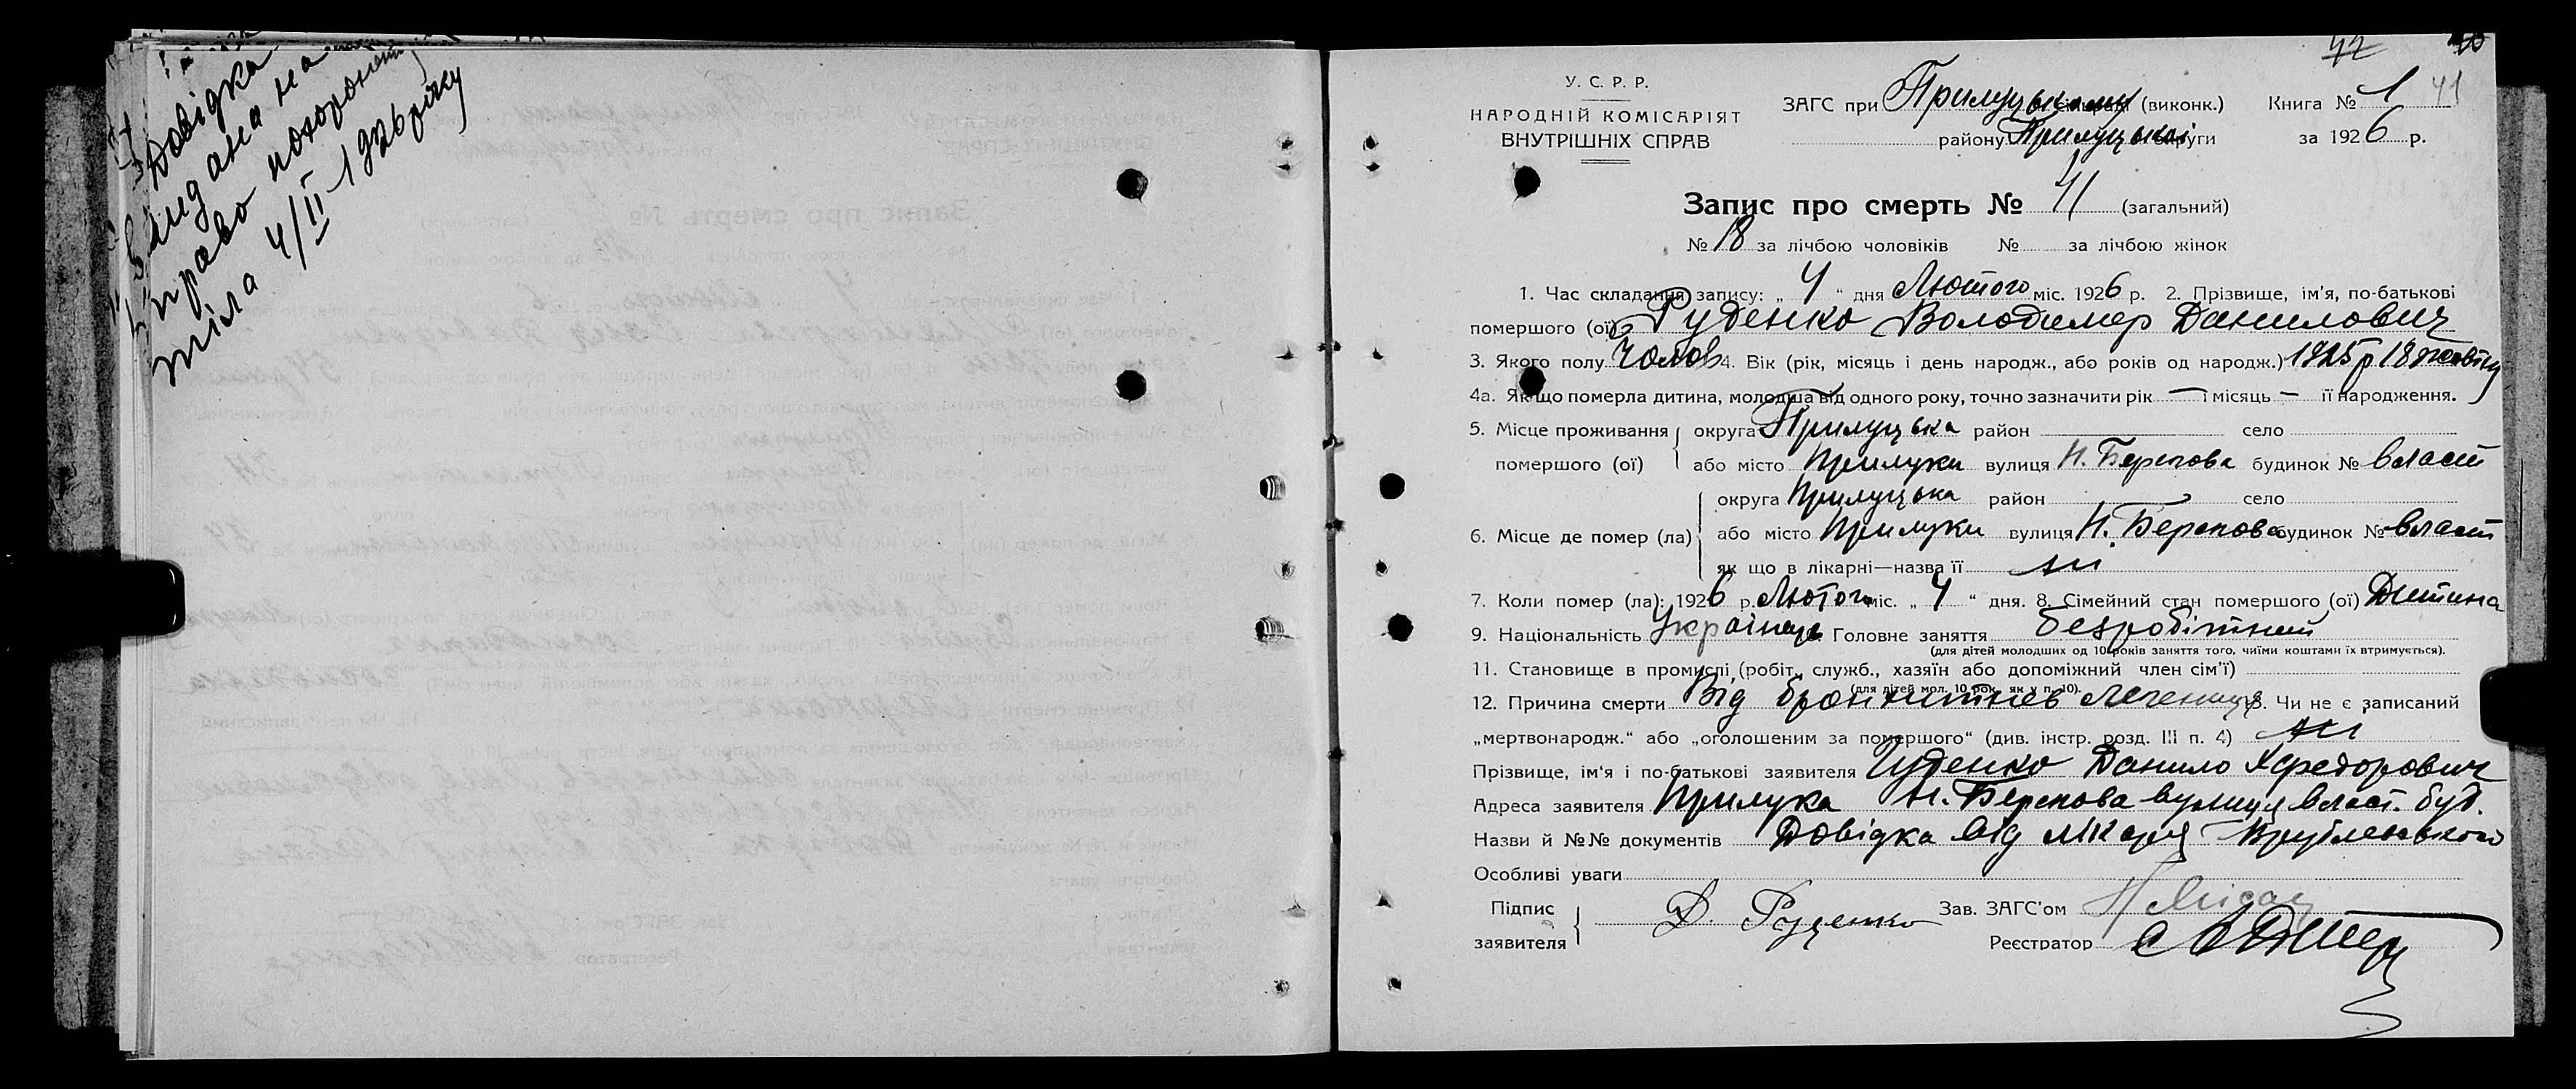 Довідка
видана на
право похорони
тіла 4/II 1926 року
42
У. С. Р. Р.
НАРОДНІЙ КОМІСАРІЯТ
ВНУТРІШНІХ СПРАВ
ЗАГС при Прилуцькому (виконк.) Книга № 1 41
району Прилуцької округи за 1926 р.
Запис про смерть № 41 (загальний)
№ 18 за лічбою чоловіків № за лічбою жінок
1. Час складання запису: „ 4 “ дня Лютого міс. 1926 р. 2. Прізвище, ім’я, по-батькові
помершого (ої) Руденко Володимер Данилович
3. Якого полу Чолов 4. Вік (рік, місяць і день народж., або років од народж.) 1925 р 18 жовтня
4а. Якщо померла дитина, молодша від одного року, точно зазначити рік — і місяць — її народження.
5. Місце проживання округа Прилуцька район село
помершого (ої) або місто Прилуки вулиця Н. Берегова будинок № власт
округа Прилуцька район село
6. Місце де помер (ла) або місто Прилуки вулиця Н. Берегова будинок № власт
як що в лікарні—назва її ні
7. Коли помер (ла): 1926 р. Лютого міс. „ 4 “ дня. 8. Сімейний стан помершого (ої) Дитина
9. Національність Українець Головне заняття безробітний
(для дітей молодших од 10 років заняття того, чиїми коштами їх втримується).
11. Становище в промислі (робіт., служб., хазяїн або допоміжний член сім’ї)
(для дітей мол. 10 рок. як у п. 10).
12. Причина смерти Від 13. Чи не є записаний
„мертвонародж.“ або „оголошеним за помершого“ (див. інстр. розд. III п. 4) ні
Прізвище, ім‘я і по-батькові заявителя Руденко Данило Хфедорович
Адреса заявителя Прилука Н. Берегова вулиця власт. буд.
Назви й №№ документів Довідка від лікаря Врублевського
Особливі уваги
Підпис
заявителя Д. Руденко
Зав. ЗАГС’ом
Реєстратор